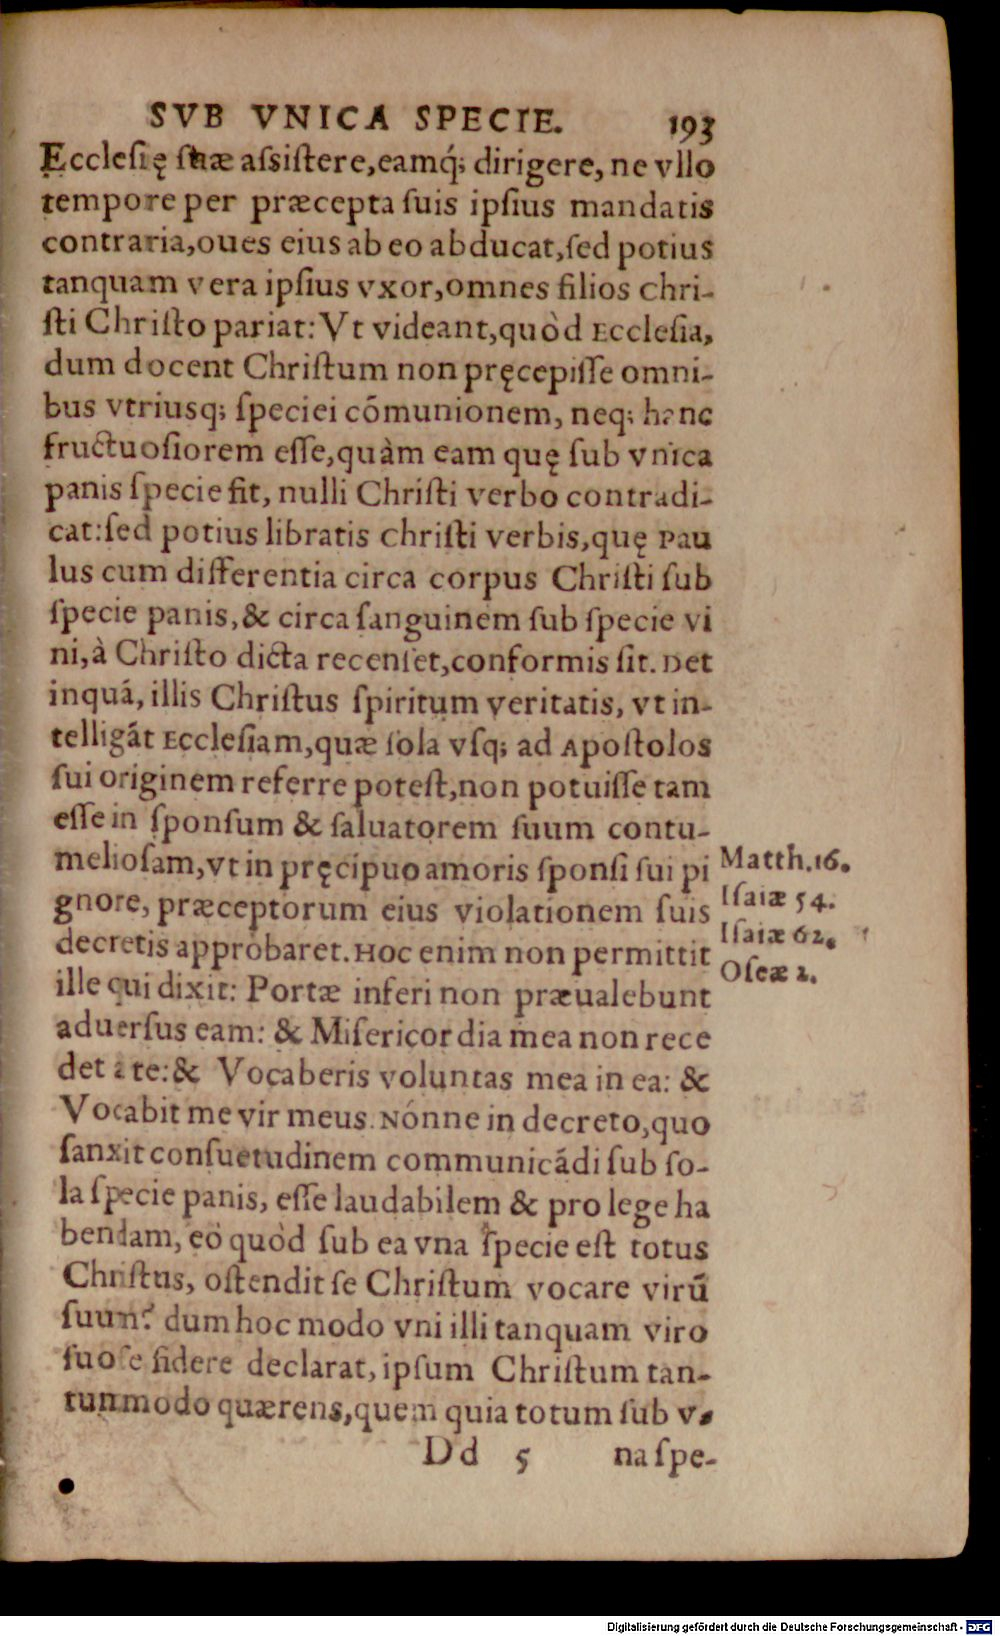 SVB VNICA SPECIE. 193
Ecclesię suæ assistere, eamq́; dirigere, ne vllo
tempore per præcepta suis ipsius mandatis
contraria, oues eius ab eo abducat, sed potius
tanquam vera ipsius vxor, omnes filios chri-
sti Christo pariat: Vt videant, quòd Ecclesia,
dum docent Christum non pręcepisse omni-
bus vtriusq; speciei cõmunionem, neq; hanc
fructuosiorem esse, quàm eam quę sub vnica
panis specie fit, nulli Christi verbo contradi-
cat: sed potius libratis christi verbis, quę Pau
lus cum differentia circa corpus Christi sub
specie panis, & circa sanguinem sub specie vi
ni, à Christo dicta recenset, conformis sit. Det
inquá, illis Christus spiritum veritatis, vt in-
telligãt Ecclesiam, quæ sola vsq; ad Apostolos
sui originem referre potest, non potuisse tam
esse in sponsum & saluatorem suum contu-
meliosam, vt in pręcipuo amoris sponsi sui pi
gnore, præceptorum eius violationem suis
decretis approbaret. Hoc enim non permittit
ille qui dixit: Portæ inferi non præualebunt
aduersus eam: & Misericordia mea non rece
det à te: & Vocaberis voluntas mea in ea: &
Vocabit me vir meus. Nónne in decreto, quo
sanxit consuetudinem communicãdi sub so-
la specie panis, esse laudabilem & pro lege ha
bendam, eò quòd sub ea vna specie est totus
Christus, ostendit se Christum vocare virũ
suum? dum hoc modo vni illi tanquam viro
suo se fidere declarat, ipsum Christum tan-
tunmodo quærens, quem quia totum sub v-
Dd 5 na spe-
Matth. 16.
Isaiæ 54.
Isaiæ 62.
Oseæ 2.
Digitalisierung gefördert durch die Deutsche Forschungsgemeinschaft - DFG